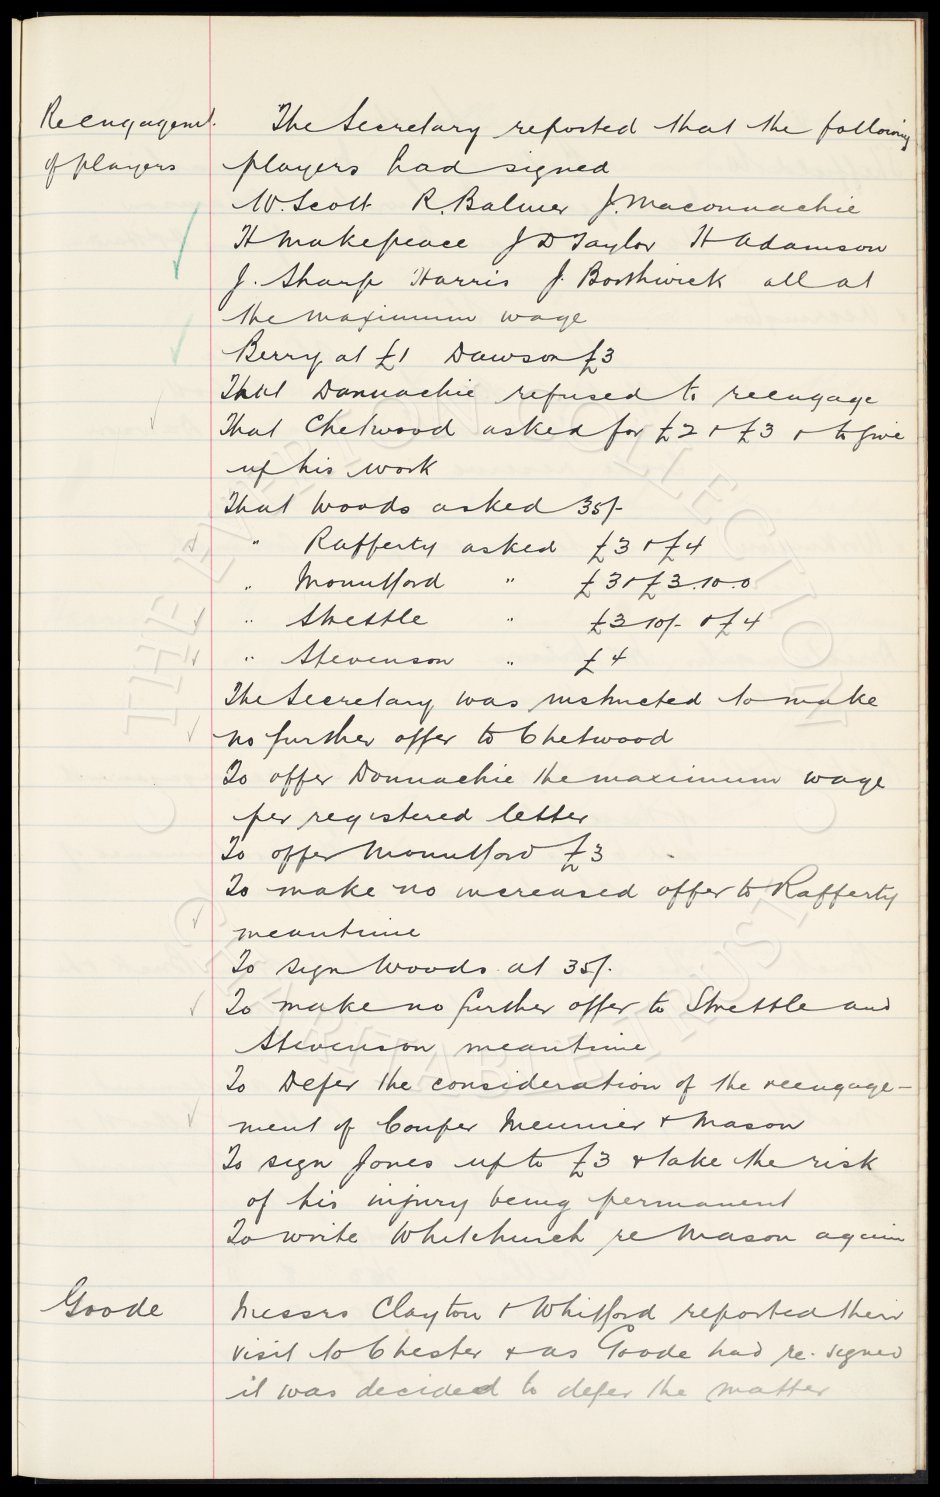 Reengagemt. The Secretary reported that the following
of players players had signed
W. Scott R. Balmer J. Maconnachie
H Makepeace J D Taylor H Adamson
J. Sharp Harris J. Borthwick all at
the maximum wage
Berry at £1 Dawson £3
That Donnachie refused to reengage
That Chetwood asked for £2 + £3 + to give
up his work
That Woods asked 35/-
" Rafferty asked £3 + £4
" Mountford " £3 + £3.10.0
" Strettle " £3 10/- + £4
" Stevenson " £4
The Secretary was instructed to make
no further offer to Chetwood
To offer Donnachie the maximum wage
per registered letter
To offer Mountford £3
To make no increased offer to Rafferty
meantime
To sign Woods at 35/-
To make no further offer to Strettle and
Stevenson meantime
To Defer the consideration of the reengage-
ment of Couper Meunier + Mason
To sign Jones up to £3 + take the risk
of his injury being permanent
To write Whitchurch re Mason again
Goode Messrs Clayton + Whitford reported their
visit to Chester + as Goode had re-signed
it was decided to defer the matter
THE EVERTON COLLECTION
CHARITABLE TRUST